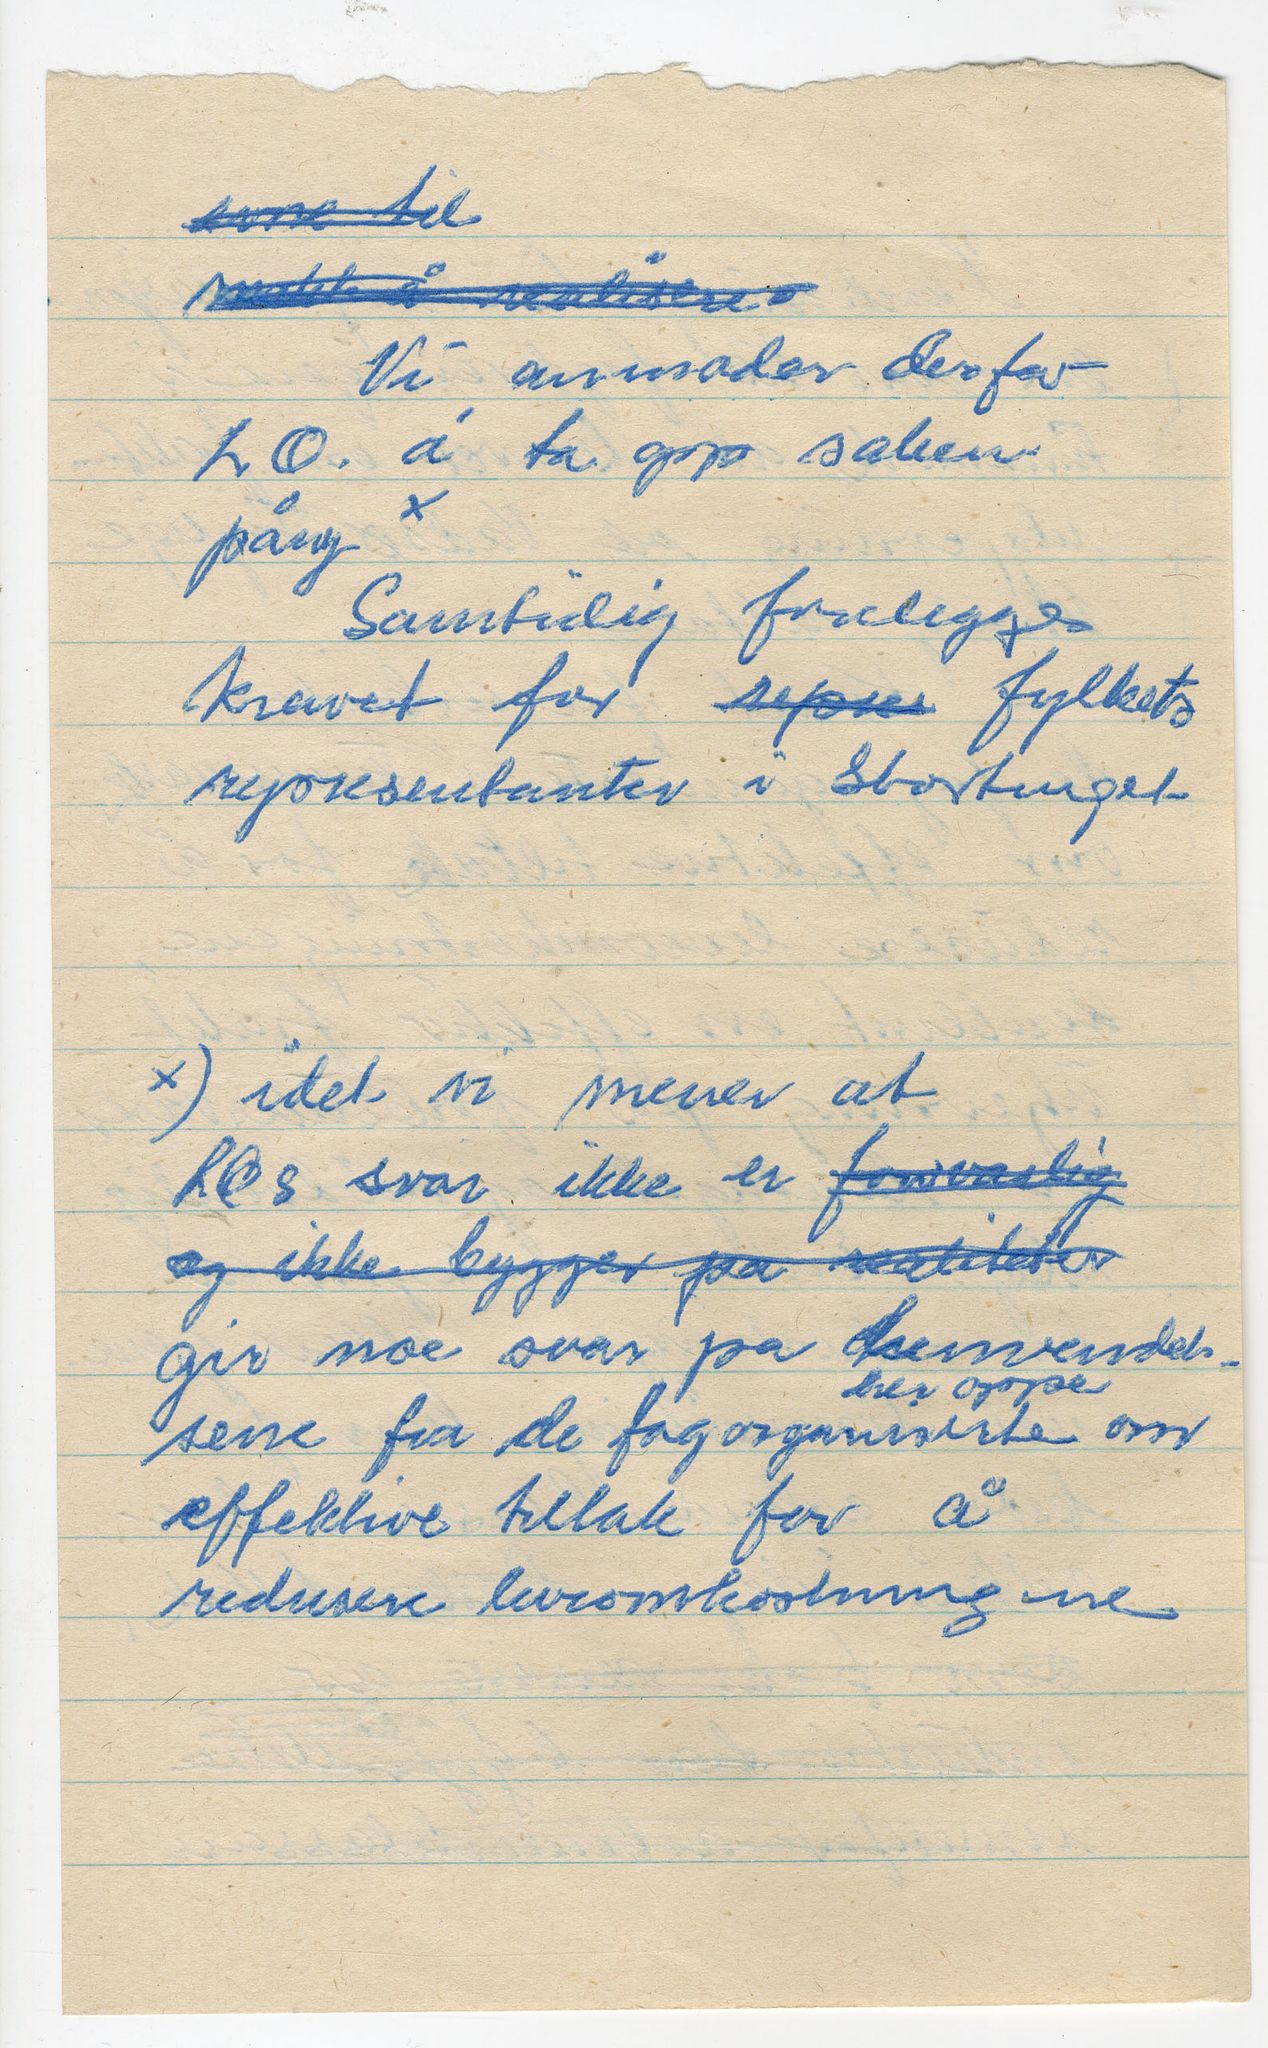 sene til
makt å realisere
Vi anmoder derfor
LO. å ta opp saken
påny x
Samtidig forelegges
kravet for repre fylkets
representanter i Stortinget
x) idet vi mener at
LOs svar ikke er forsvarlig
og ikke bygger på realiteter
gir noe svar på henvendel-
her oppe
sene fra de fagorganiserte om
effektive tiltak for å
redusere leveomkostningene